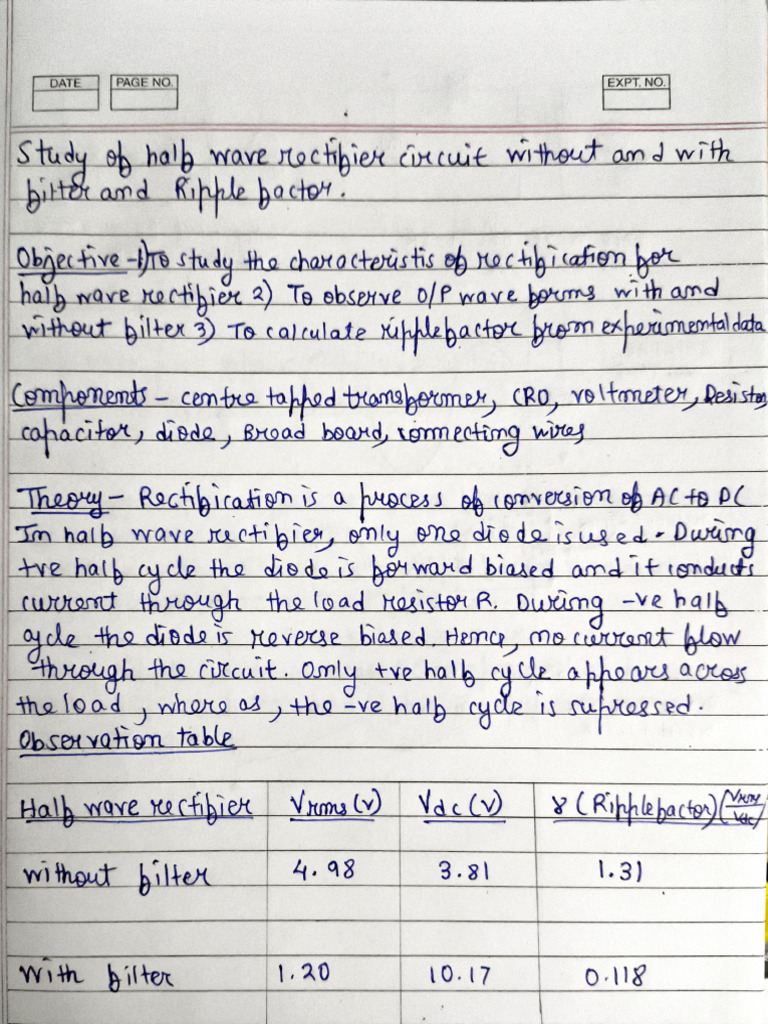 DATE PAGE NO. EXPT. NO.
Study of half wave rectifier circuit without and with
filter and Ripple factor.
Objective -1) To study the characteristis of rectification for
half wave rectifier 2) To observe O/P wave forms with and
without filter 3) To calculate ripple factor from experimental data
Components - centre tapped transformer, CRO, voltmeter, Resistor
capacitor, diode, Broad board, connecting wires
Theory - Rectification is a process of conversion of AC to DC
In half wave rectifier, only one diode is used. During
+ve half cycle the diode is forward biased and it conducts
current through the load resistor R. During -ve half
cycle the diode is reverse biased. Hence, no current flow
through the circuit. Only +ve half cycle appears across
the load, where as, the -ve half cycle is supressed.
Observation table
Half wave rectifier Vrms (v) Vdc (v) γ (Ripple factor) (Vrms/Vdc)
without filter 4.98 3.81 1.31
With filter 1.20 10.17 0.118